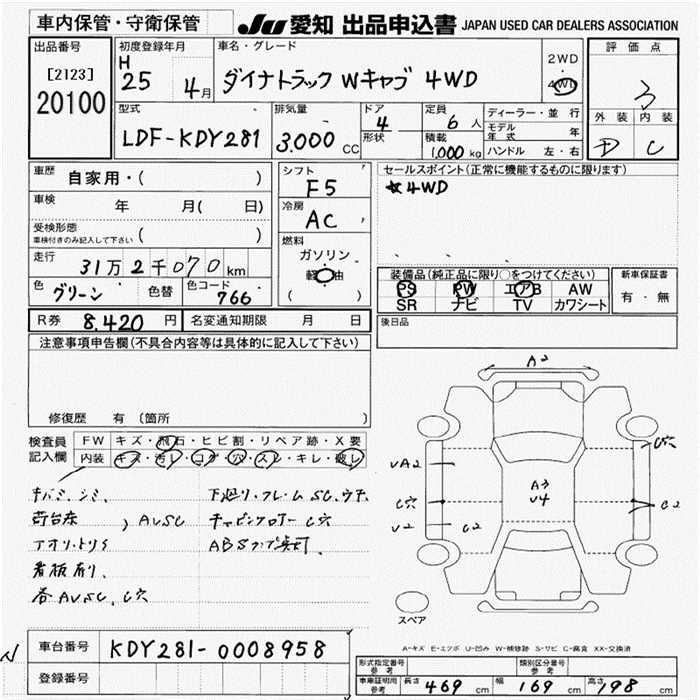 車内保管・守衛保管 JU 愛知 出品申込書 JAPAN USED CAR DEALERS ASSOCIATION
出品番号
[2123]
20100
初度登録年月
H
25 4月
車名・グレード
ダイナトラック Wキャブ 4WD
2WD
4WD
評価点
3
外装 内装
D C
型式
LDF-KDY281
排気量
3.000 CC
ドア
4
形状
定員
6人
積載
1,000 kg
ディーラー・並行
モデル年式 年
ハンドル 左・右
車歴 自家用・( )
車検 年 月( 日)
受検形態
車検付きのみ記入して下さい ( )
走行 31万2千070km
色 グリーン 色替 色コード 766
シフト
F5
冷房
AC
燃料
ガソリン
軽油
( )
セールスポイント(正常に機能するものに限ります)
☆4WD
装備品(純正品に限り○をつけてください)
PS PW エアB AW
SR ナビ TV カワシート
新車保証書
有・無
R券 8,420円 名変通知期限 月 日
後日品
注意事項申告欄(不具合内容等は具体的に記入して下さい)
修復歴 有(箇所 )
検査員記入欄
FW キズ・飛石・ヒビ割・リペア跡・X要
内装 キズ・汚レ・コゲ・穴・スレ・キレ・破レ
キバミ、シミ、
荷台床 , AVSC
アオリ、トリイ
看板有り、
各AVSC、C穴
下廻り・フレームSC、サテ
C穴
A2
VA2
C穴
V2
C2
A3
V4
C穴
C2
スペア
A-キズ E-エクボ U-凹み W-補修跡 S-サビ C-腐食 XX-交換済
車台番号 KDY281-0008958
登録番号
形式指定番号 参考
類別区分番号 参考
車庫証明用 参考 長さ 469 cm 幅 169 cm 高さ 198 cm